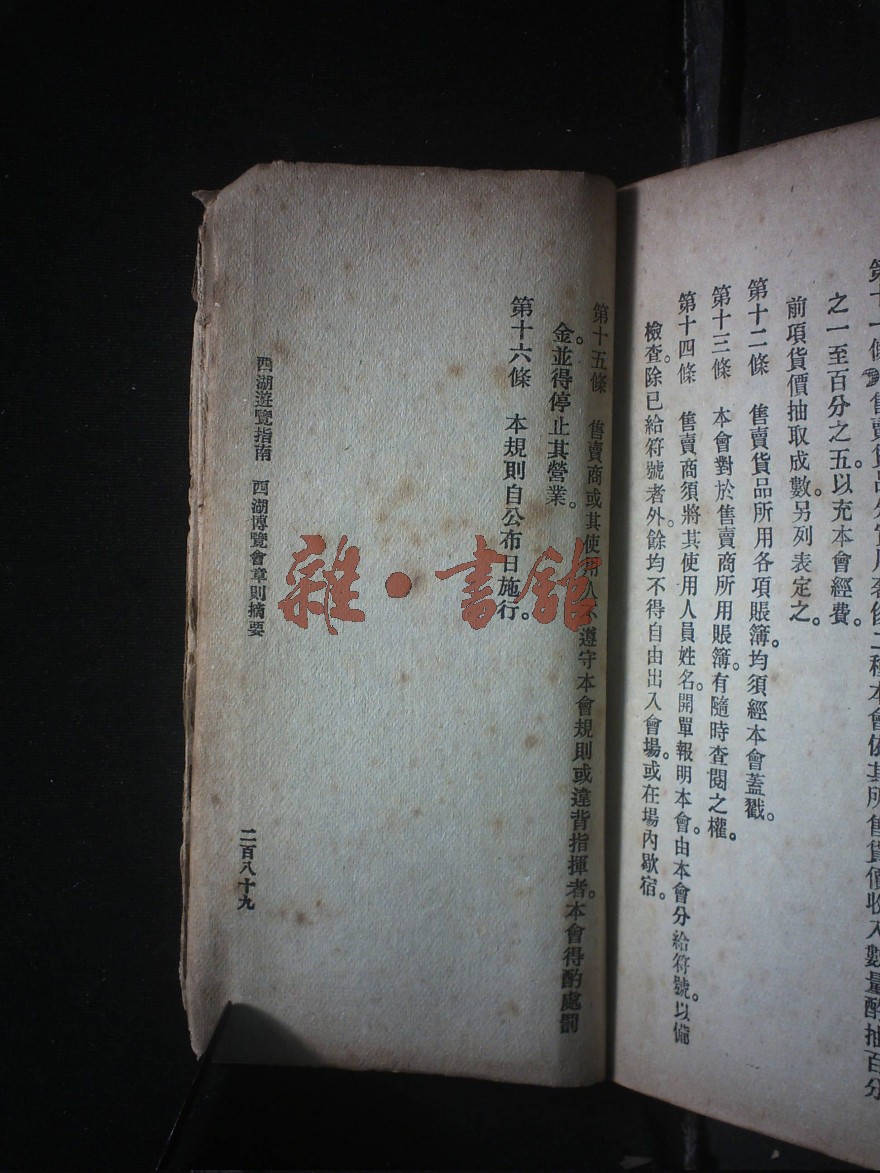 第十一條　售賣貨品分實用奢侈二種本會依其所售貨價收入數量酌抽百分
之一至百分之五。以充本會經費。
前項貨價抽取成數。另列表定之。
第十二條　售賣貨品所用各項賬簿。均須經本會蓋戳。
第十三條　本會對於售賣商所用賬簿。有隨時查閱之權。
第十四條　售賣商須將其使用人員姓名。開單報明本會。由本會分給符號。以備
檢查。除已給符號者外。餘均不得自由出入會場。或在場內歇宿。
第十五條　售賣商或其使用人不遵守本會規則或違背指揮者。本會得酌處罰
金。並得停止其營業。
第十六條　本規則自公布日施行。
西湖遊覽指南　西湖博覽會章則摘要
二百八十九
雜·書館